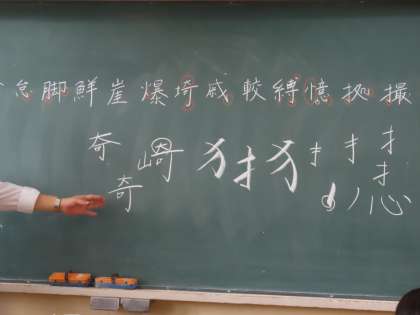 怠脚鮮崖爆埼戚較縛憶拠撮
奇崎犭扌犭扌扌扌
奇忄心